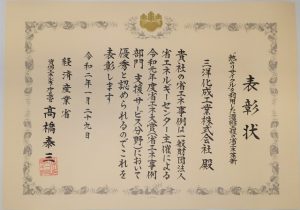 表彰状
熱リサイクルを利用した濃縮工程の省エネ革新
三洋化成工業株式会社 殿
貴社の省エネ事例は一般財団法人
省エネルギーセンター主催による
令和元年度省エネ大賞(省エネ事例
部門 支援・サービス分野)において
優秀と認められるのでこれを
表彰します
令和二年一月二十九日
経済産業省
資源エネルギー庁長官 髙橋泰三